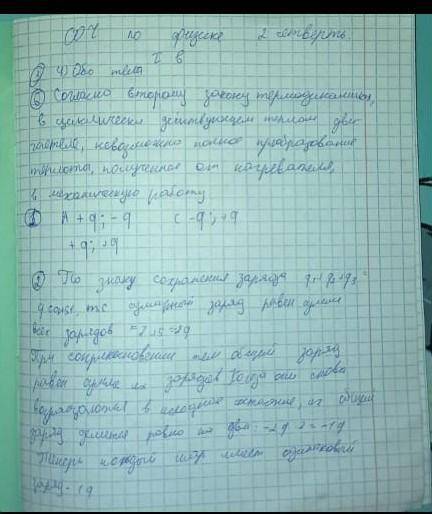 СОЧ по физике 2 четверть.
I в
4) Оба тела
⑥ Согласно второму закону термодинамики,
в циклически действующем тепловом дви-
гателе, невозможно полное преобразование
теплоты, полученное от нагревателя,
в механическую работу.
A +q; -q C -q; +q
+q; +q
② По закону сохранения заряда q₁+q₂+q₃=
qconst, т.е суммарный заряд равен сумме
всех зарядов
При соприкосновении тел общий заряд
равен сумме их зарядов. Когда они снова
возвращаются в исходное, их общий
заряд делится ровно на два: -2q : 2 = -1q
Теперь каждый шар имеет одинаковый
заряд - 1q